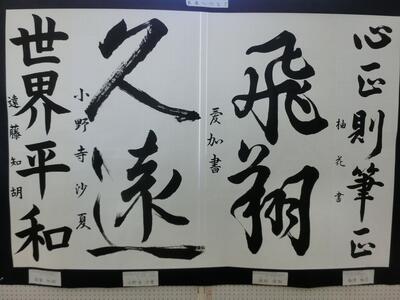 心正則筆正
柚花書
飛翔
愛加書
久遠
小野寺沙夏
世界平和
遠藤知胡